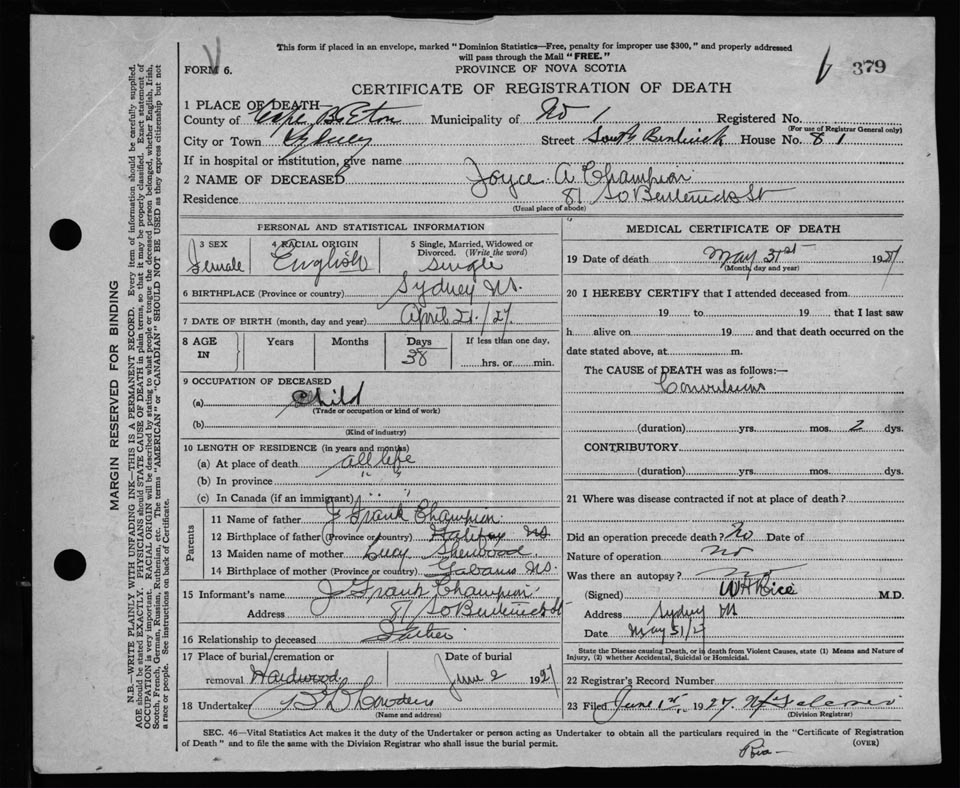 This form if placed in an envelope, marked "Dominion Statistics—Free, penalty for improper use $300," and properly addressed
will pass through the Mail "FREE."
FORM 6.
PROVINCE OF NOVA SCOTIA
379
CERTIFICATE OF REGISTRATION OF DEATH
1 PLACE OF DEATH
County of Cape Breton Municipality of No 1 Registered No.
(For use of Registrar General only)
City or Town Sydney Street South Bentinick House No. 81
If in hospital or institution, give name
2 NAME OF DECEASED Joyce A Champion
Residence 81 So Bentinick St
(Usual place of abode)
PERSONAL AND STATISTICAL INFORMATION
3 SEX 4 RACIAL ORIGIN 5 Single, Married, Widowed or Divorced. (Write the word)
Female English Single
6 BIRTHPLACE (Province or country) Sydney N.S.
7 DATE OF BIRTH (month, day and year) April 21/27.
8 AGE IN Years Months Days If less than one day,
38 hrs. or min.
9 OCCUPATION OF DECEASED
(a) Child
(Trade or occupation or kind of work)
(b)
(Kind of industry)
10 LENGTH OF RESIDENCE (in years and months)
(a) At place of death all life
(b) In province " "
(c) In Canada (if an immigrant) " "
Parents
11 Name of father J Frank Champion
12 Birthplace of father (Province or country) Halifax NS
13 Maiden name of mother Lucy Sherwood
14 Birthplace of mother (Province or country) Gabarus NS.
15 Informant's name J Frank Champion
Address 81 So Bentinick St
16 Relationship to deceased Father
17 Place of burial, cremation or Date of burial
removal Hardwood June 2 1927
18 Undertaker Lowden
(Name and address)
MEDICAL CERTIFICATE OF DEATH
19 Date of death May 31st 1927
(Month, day and year)
20 I HEREBY CERTIFY that I attended deceased from
19 to 19 that I last saw
h alive on 19 and that death occurred on the
date stated above, at m.
The CAUSE of DEATH was as follows:—
Convulsions
(duration) yrs. mos. 2 dys.
CONTRIBUTORY
(duration) yrs. mos. dys.
21 Where was disease contracted if not at place of death?
Did an operation precede death? No Date of
Nature of operation no
Was there an autopsy?
(Signed) WH Rice M.D.
Address Sydney
Date May 31/27
State the Disease causing Death, or in death from Violent Causes, state (1) Means and Nature of
Injury, (2) whether Accidental, Suicidal or Homicidal.
22 Registrar's Record Number
23 Filed June 1st 1927.
(Division Registrar)
SEC. 46—Vital Statistics Act makes it the duty of the Undertaker or person acting as Undertaker to obtain all the particulars required in the "Certificate of Registration
of Death" and to file the same with the Division Registrar who shall issue the burial permit.
(OVER)
MARGIN RESERVED FOR BINDING
N.B.—WRITE PLAINLY WITH UNFADING INK—THIS IS A PERMANENT RECORD. Every item of information should be carefully supplied.
AGE should be stated EXACTLY. PHYSICIANS should STATE CAUSE OF DEATH in plain terms, so that it may be properly classified. Exact statement of
OCCUPATION is very important. RACIAL ORIGIN will be described by stating to what people or tongue the deceased person belonged, whether English, Irish,
Scotch, French, German, Russian, Ruthenian, etc. The terms "AMERICAN" or "CANADIAN" SHOULD NOT BE USED as they express citizenship but not
a race or people. See instructions on back of Certificate.